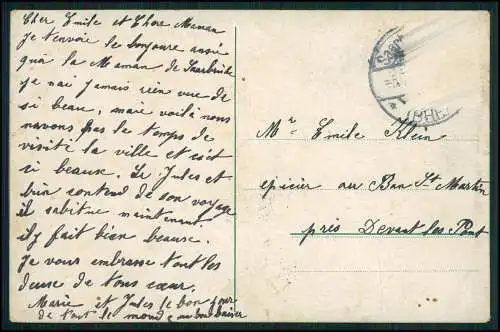 Cher Emile et Chere Maman
Je t'envoie le bonjoure ausie
qua la Maman de Saarbrücke
ja nai jamais rien vue de
si beau, maie voila nous
navons pas le temps de
visité la ville et cait
si beause. Le Jules et
bien contend de son voyage
il sabitue maintenant.
il y fait bien beause.
Je vous embrasse tout les
deuse de tous cœur.
Marie et Jules le bonjour
de tout le monde
Mr Emile Klein
epicier au Ban St Martin
près Devant les Pont
Saar
(RHE